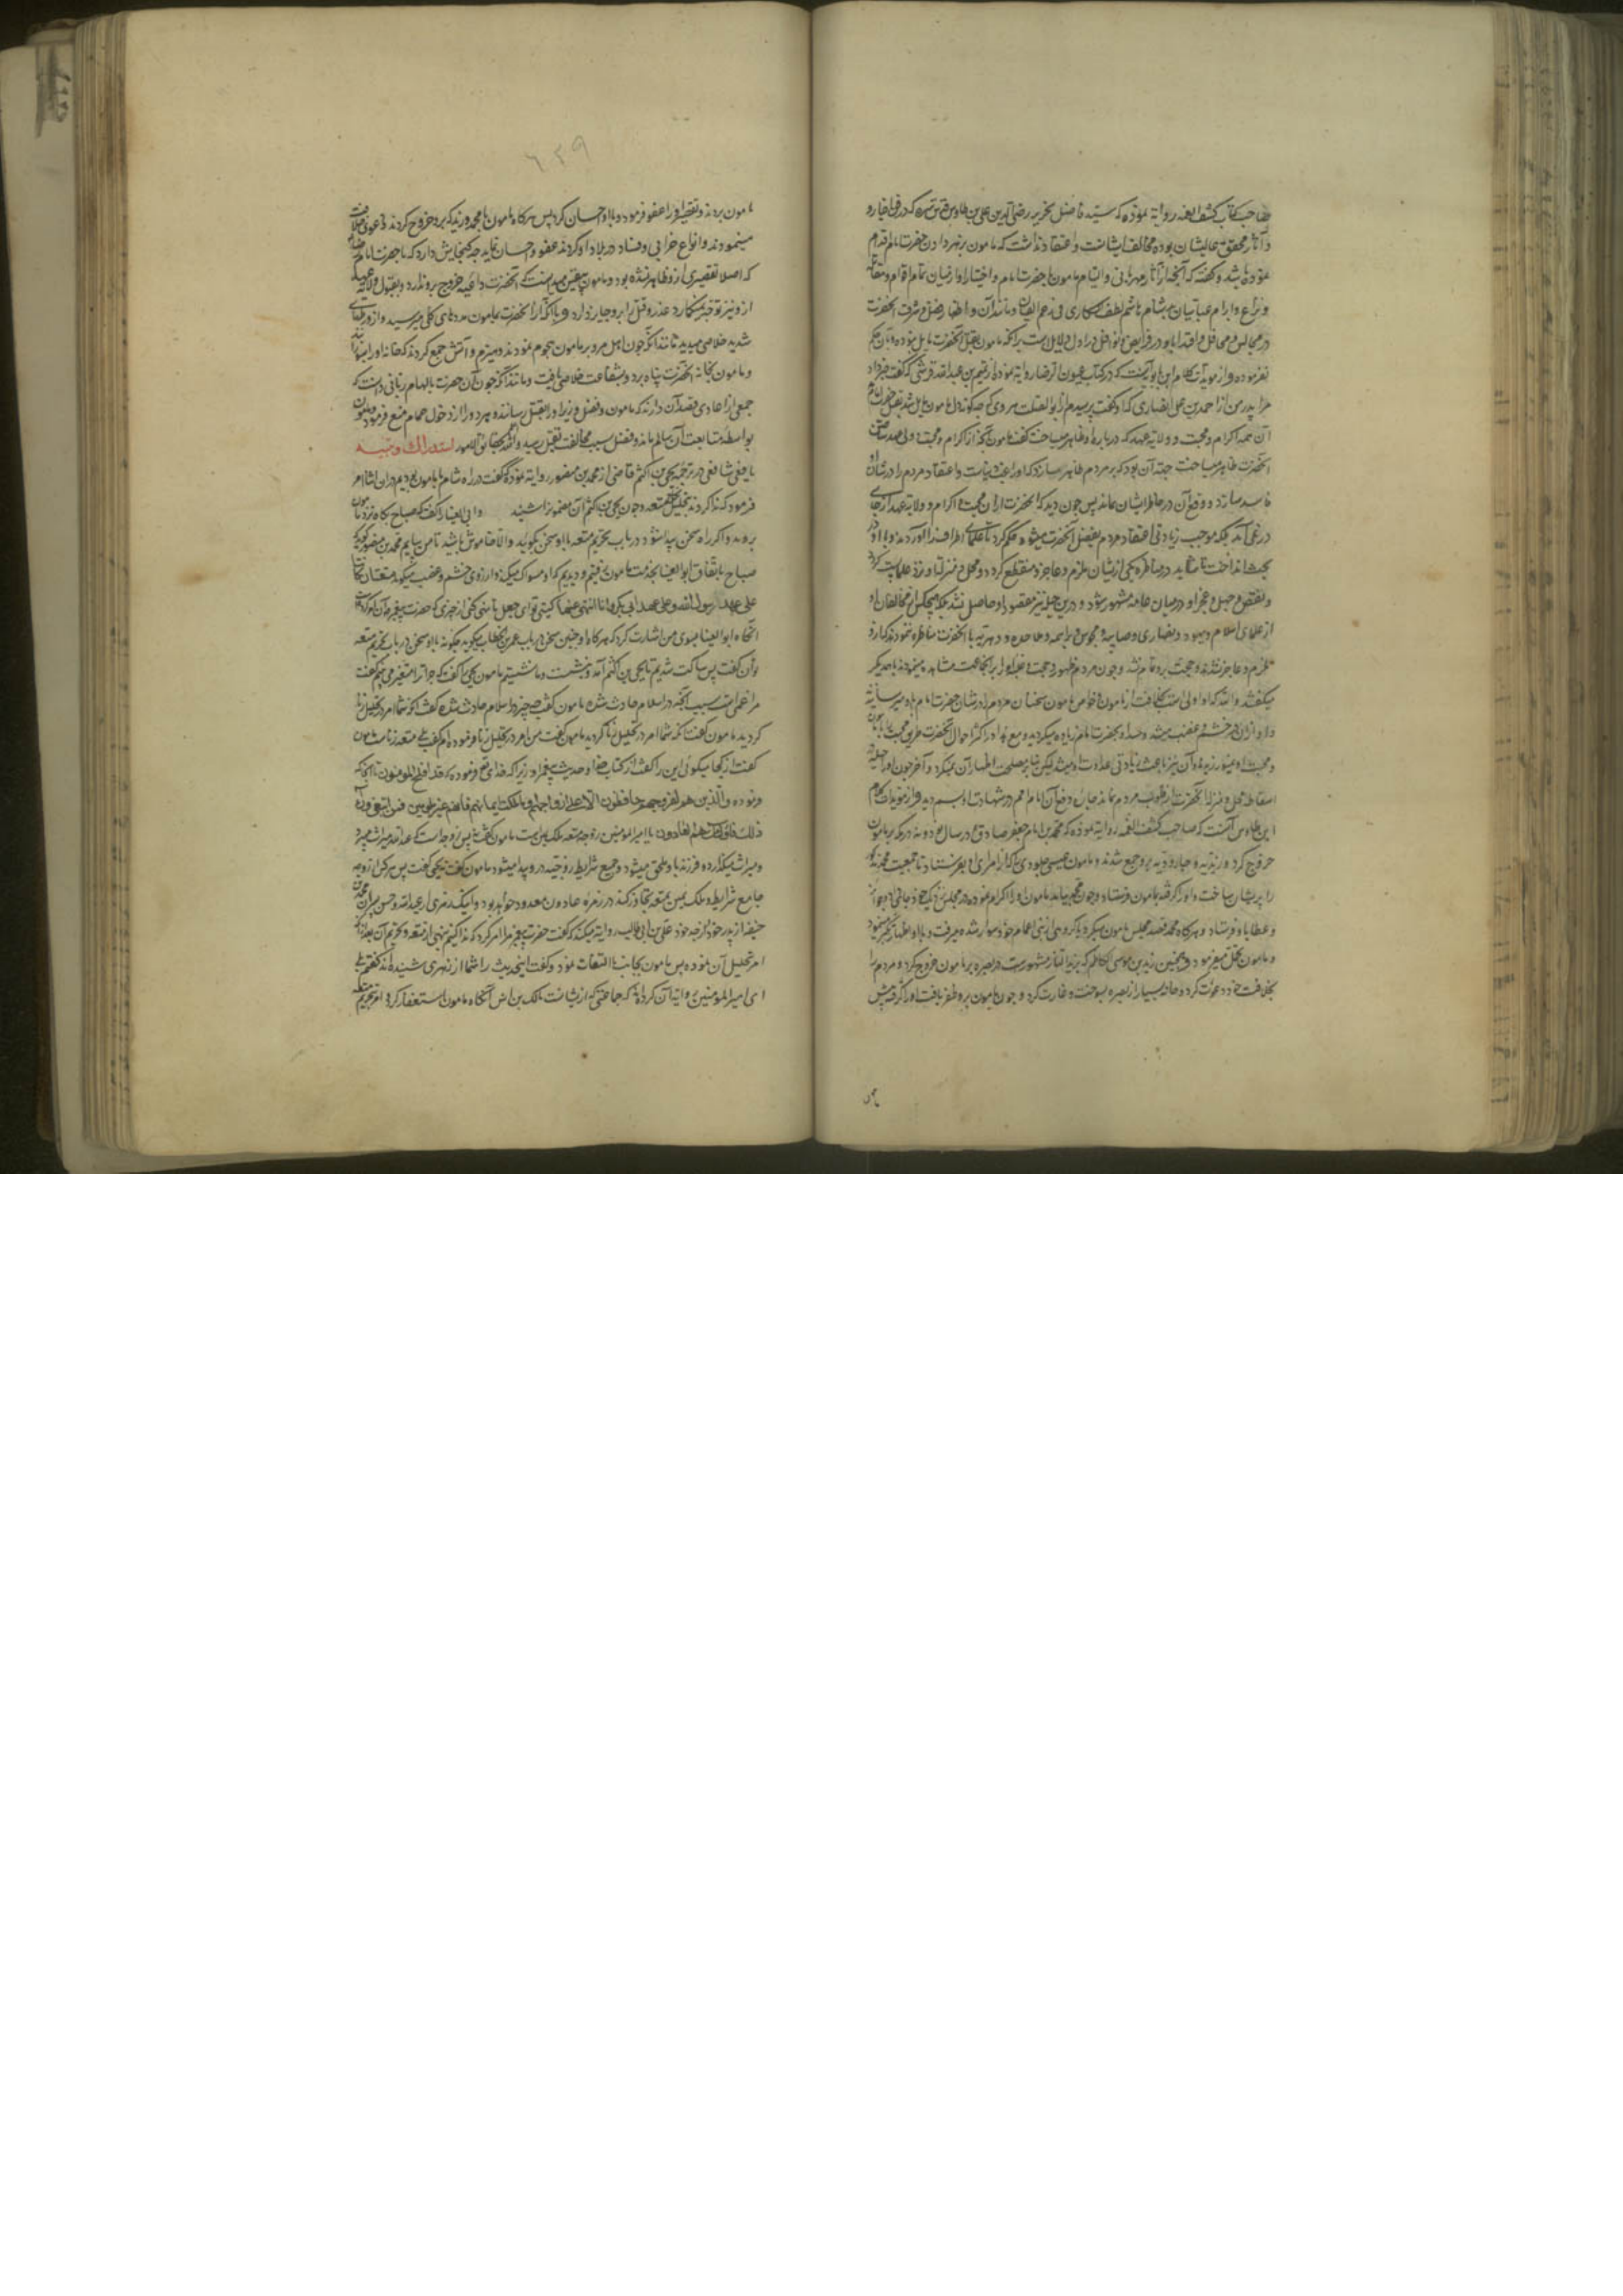 صاحب کتاب کشف الغمه روایة نموده که سید فاضل نحریر رضی الدین علی بن طاوس قدس سره که در فن اخبار و
و آثار محقق عالیشان بوده مخالف ایشانست و اعتقاد نداشت که مامون بر زهر دادن حضرت امام اقدام
نموده باشد و گفته که آنچه از آثار مهربانی و التیام مامون با حضرت امام و اختیار او از میان تمام اقوام
و نزاع و ابرام عباسیان و مانند آن و اظهار فضل و شرف آنحضرت
در مجالس و محافل و اقتدا باو در فرایض و نوافل دلالت بر آنکه مامون بقتل آنحضرت مایل نبوده و بآن حکم
نفرموده و از مویدات کلام ابن بابویه آنست که در کتاب عیون الرضا روایة نموده از تمیم بن عبد الله قرشی که گفت خبر داد
مرا پدر من از احمد بن علی انصاری که او گفت پرسیدم از ابو الصلت هروی که چگونه دل مامون مایل شد بقتل حضرت امام
آن همه اکرام و محبت و ولایة عهد که در باره او ظاهر میساخت گفت مامون اکرام و محبت و ولی عهد ساختن
آنحضرت ظاهر میساخت جهة آن بود که بر مردم ظاهر سازد که او راغب دنیاست و اعتقاد مردم را در شان او
فاسد سازد و وقع آن در خاطر ایشان نماند پس چون دید که آنحضرت را از آن محبت و اکرام و ولایة عهد از جای
در نمی آید بلکه موجب زیادتی اعتقاد مردم بفضل آنحضرت میشود حکم کرد تا علمای اطراف را آوردند و با او در
بحث انداخت تا شاید در مناظره یکی از ایشان ملزم و عاجز و منقطع گردد و محل و منزلت او نزد علما پست گردد
و نقص و جهل و عجز او در میان عامه مشهور شود و درین حیله نیز مقصود او حاصل نشد بلکه هیچکس از مخالفان او
از علمای اسلام و یهود و نصاری و صابیه و مجوس و براهمه و ملاحده و دهریه با آنحضرت مناظره ننمودند که از او
ملزم و عاجز نشدند و حجت برو تمام نشد و چون مردم ظهور حجت و غلبه او را بر آنجماعت مشاهده مینمودند با همدیگر
میگفتند والله که او اولی است بخلافت از مامون و خواص مامون سخنان مردم را در شان حضرت امام باو میرسانیدند
و او از آن در خشم و غضب میشد و حسد او بحضرت امام زیاده میگردید و مع هذا در اکثر احوال آنحضرت
و محبت او میورزید و آن نیز باعث زیادتی عداوت او میشد لیکن بنابر مصلحت اظهار آن نمیکرد و آخر چون او را حیله
اسقاط محل و منزلة آنحضرت از قلوب مردم نماند چاره دفع آن امام در شهادت او بسم دید و از مویدات کلام
ابن طاوس آنست که صاحب کشف الغمه روایة نموده که محمد بن امام جعفر صادق در سال نود و نه در مکه بر مامون
خروج کرد و زیدیه و جارودیه برو جمع شدند و مامون عیسی جلودی را که از امرای او بود فرستاد تا جمعیت محمد مذکور
را پریشان ساخت و او را گرفته بمامون فرستاد و چون محمد بیامد مامون او را اکرام نموده در مجلس نزدیک خود جای داد و جوایز
و عطایا فرستاد و هرگاه محمد قصد مجلس مامون میکرد با گروهی از بنی اعمام خود سوار شده میرفت و با او اظهار تکبر مینمود
و مامون تحمل میفرمود و همچنین زید بن موسی الکاظم که بزید النار مشهور است در بصره بر مامون خروج کرد و مردم را
بخلافت خود دعوت کرد و خانه بسیار از بصره بسوخت و غارت کرد و چون مامون برو ظفر یافت او را گرفته پیش
٦٢٩
مامون بردند و تقصیر او را عفو فرموده با او احسان کرد پس هرگاه مامون با محمد و زید که برو خروج کردند و دعوی خلافت
مینمودند و انواع خرابی و فساد در بلاد او کردند عفو و احسان نماید چه گنجایش دارد که با حضرت امام رضا
که اصلا تقصیری ازو ظاهر نشده بود و مامون بیقین میدانست که آنحضرت داعیه خروج برو ندارد و بقبول ولایة عهد
ازو نیز بکاره عذر و قتل را برو جایز دارد و با آنکه از آنحضرت بمامون مددهای کلی میرسید و از ورطهای
شدید خلاص میدید مانند آنکه چون اهل مرو بر مامون هجوم نمودند و هیزم و آتش جمع کردند که خانه او را بسوزانند
و مامون بخانه آنحضرت پناه برد و بشفاعت خلاصی یافت و مانند آنکه چون آن حضرت بالهام ربانی دانست که
جمعی از اعادی قصد آن دارند که مامون و فضل وزیر او را بقتل رسانند هر دو را از دخول حمام منع فرمود و مامون
بواسطه متابعت آن سالم ماند و فضل بسبب مخالفت بقتل رسید والله بحقایق الامور استدراک و تنبیه
یافعی شافعی در ترجمه یحیی بن اکثم قاضی از محمد بن منصور روایة نموده که گفت در راه شام با مامون بودیم در آن اثنا امر
فرمود که ندا کردند بتحلیل متعه و چون یحیی بن اکثم آن مضمون را شنید و ابی العینا را گفت که صباح پگاه نزد مامون
بروید و اگر راه سخن پیدا شود در باب تحریم متعه با او سخن بگویید و الا خاموش باشید تا من بیایم محمد بن منصور گوید که
صباح باتفاق ابو العینا بخدمت مامون رفتیم و دیدیم که او مسواک میکند و از روی خشم و غضب میگوید متعتان کانتا
علی عهد رسول الله و علی عهد ابی بکر و انا انهی عنهما کیستی تو ای جعل تا نهی کنی از چیزی که حضرت پیغمبر بآن امر کرده
آنگاه ابو العینا بسوی من اشارت کرد که هرگاه او چنین سخن در باب عمر بن الخطاب میگوید چگونه با او سخن در باب تحریم متعه
توان گفت پس ساکت شدیم تا یحیی بن اکثم آمد و بنشست و ما نشستیم مامون یحیی را گفت که چرا ترا متغیر می بینم گفت
مرا غمی است بسبب آنچه در اسلام حادث شده مامون گفت چه چیز در اسلام حادث شده گفت آنکه شما امر در تحلیل زنا
کردید مامون گفت آنکه شما امر در تحلیل زنا کردید مامون گفت من امر در تحلیل زنا فرموده ام گفت بلی متعه زناست مامون
گفت از کجا میگوئی این را گفت از کتاب خدا و حدیث پیغمبر او زیرا که خدای تع فرموده که قد افلح المؤمنون تا آنجا که
فرموده والذین هم لفروجهم حافظون الا علی ازواجهم او ما ملکت ایمانهم فانهم غیر ملومین فمن ابتغی وراء
ذلک فاولئک هم العادون یا امیر المومنین زوجه متعه ملک یمین است مامون گفت نه پس زوجه است که عند الله میراث میبرد
و میراث میگذارد و فرزند باو ملحق میشود و جمیع شرایط زوجیت درو پیدا میشود مامون گفت نه یحیی گفت پس هرکس از زوجه
جامع شرایط و ملک یمین بمتعه تجاوز کند در زمره عادون معدود خواهد بود و اینک زهری از عبد الله و حسن پسران محمد بن
حنفیه از پدر خود از جد خود علی بن ابی طالب روایة میکند که گفت حضرت پیغمبر مرا امر کرد که ندا کنم بنهی از متعه و تحریم آن بعد از آنکه
امر بتحلیل آن نموده پس مامون بجانب ما التفات نمود و گفت این حدیث را شما از زهری شنیده اند گفتم بلی
ای امیر المومنین روایة آن کرده اند جماعتی که از ایشانست مالک بن انس آنگاه مامون استغفار کرد و امر بتحریم متعه